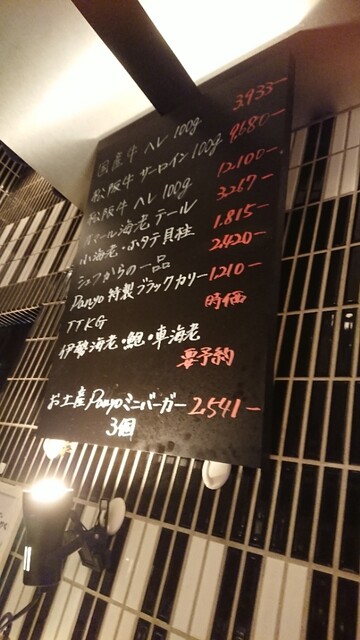 国産牛 ヘレ 100g 3.933-
松阪牛 サーロイン 100g 9.680-
松阪牛 ヘレ 100g 12.100-
オマール海老 テール 3267-
小海老・ホタテ貝柱 1.815-
シェフからの一品 2.420-
Pouyo 特製ブラックカリー 1.210-
TTKG 時価
伊勢海老・鮑・車海老
要予約
お土産 Pouyoミニバーガー 2.541-
3個